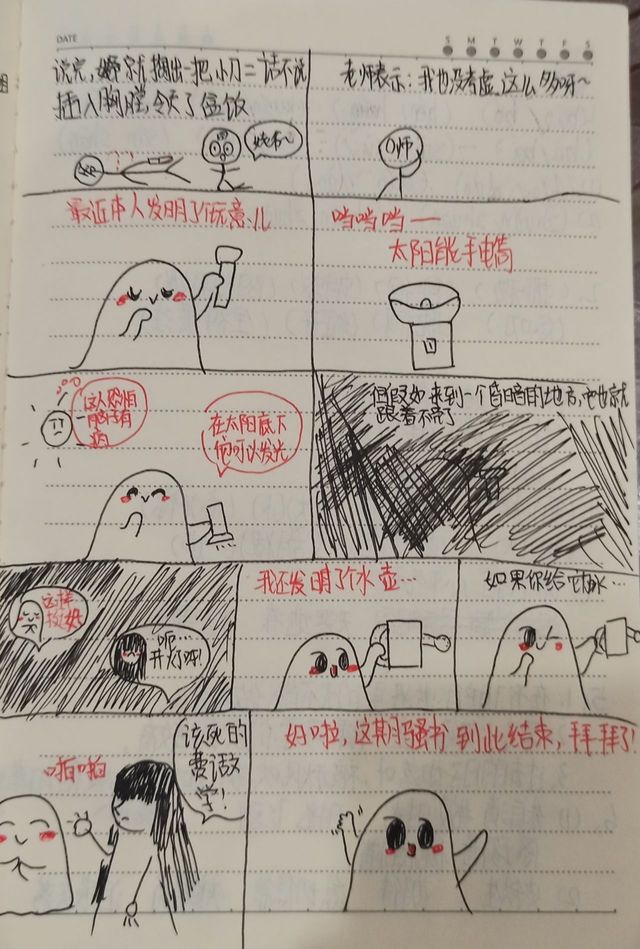 DATE
S M T W T F S
说完,
就掏出一把小刀二话不说
插入胸膛,
老师表示:我也没考虑这么多呀~
??
O师
最近本人发明了个玩意儿
当当当——
太阳能手电筒
这人恐怕
脑子有
病
在太阳底下
他可以发光
但假如来到一个昏暗的地方,它也就
跟着不亮了
这样
挺好
呃…
开灯呀!
我还发明了个水壶…
如果你给它
水…
啪啪
该死的
费话文
学!
好啦,这期
到此结束,拜拜了!